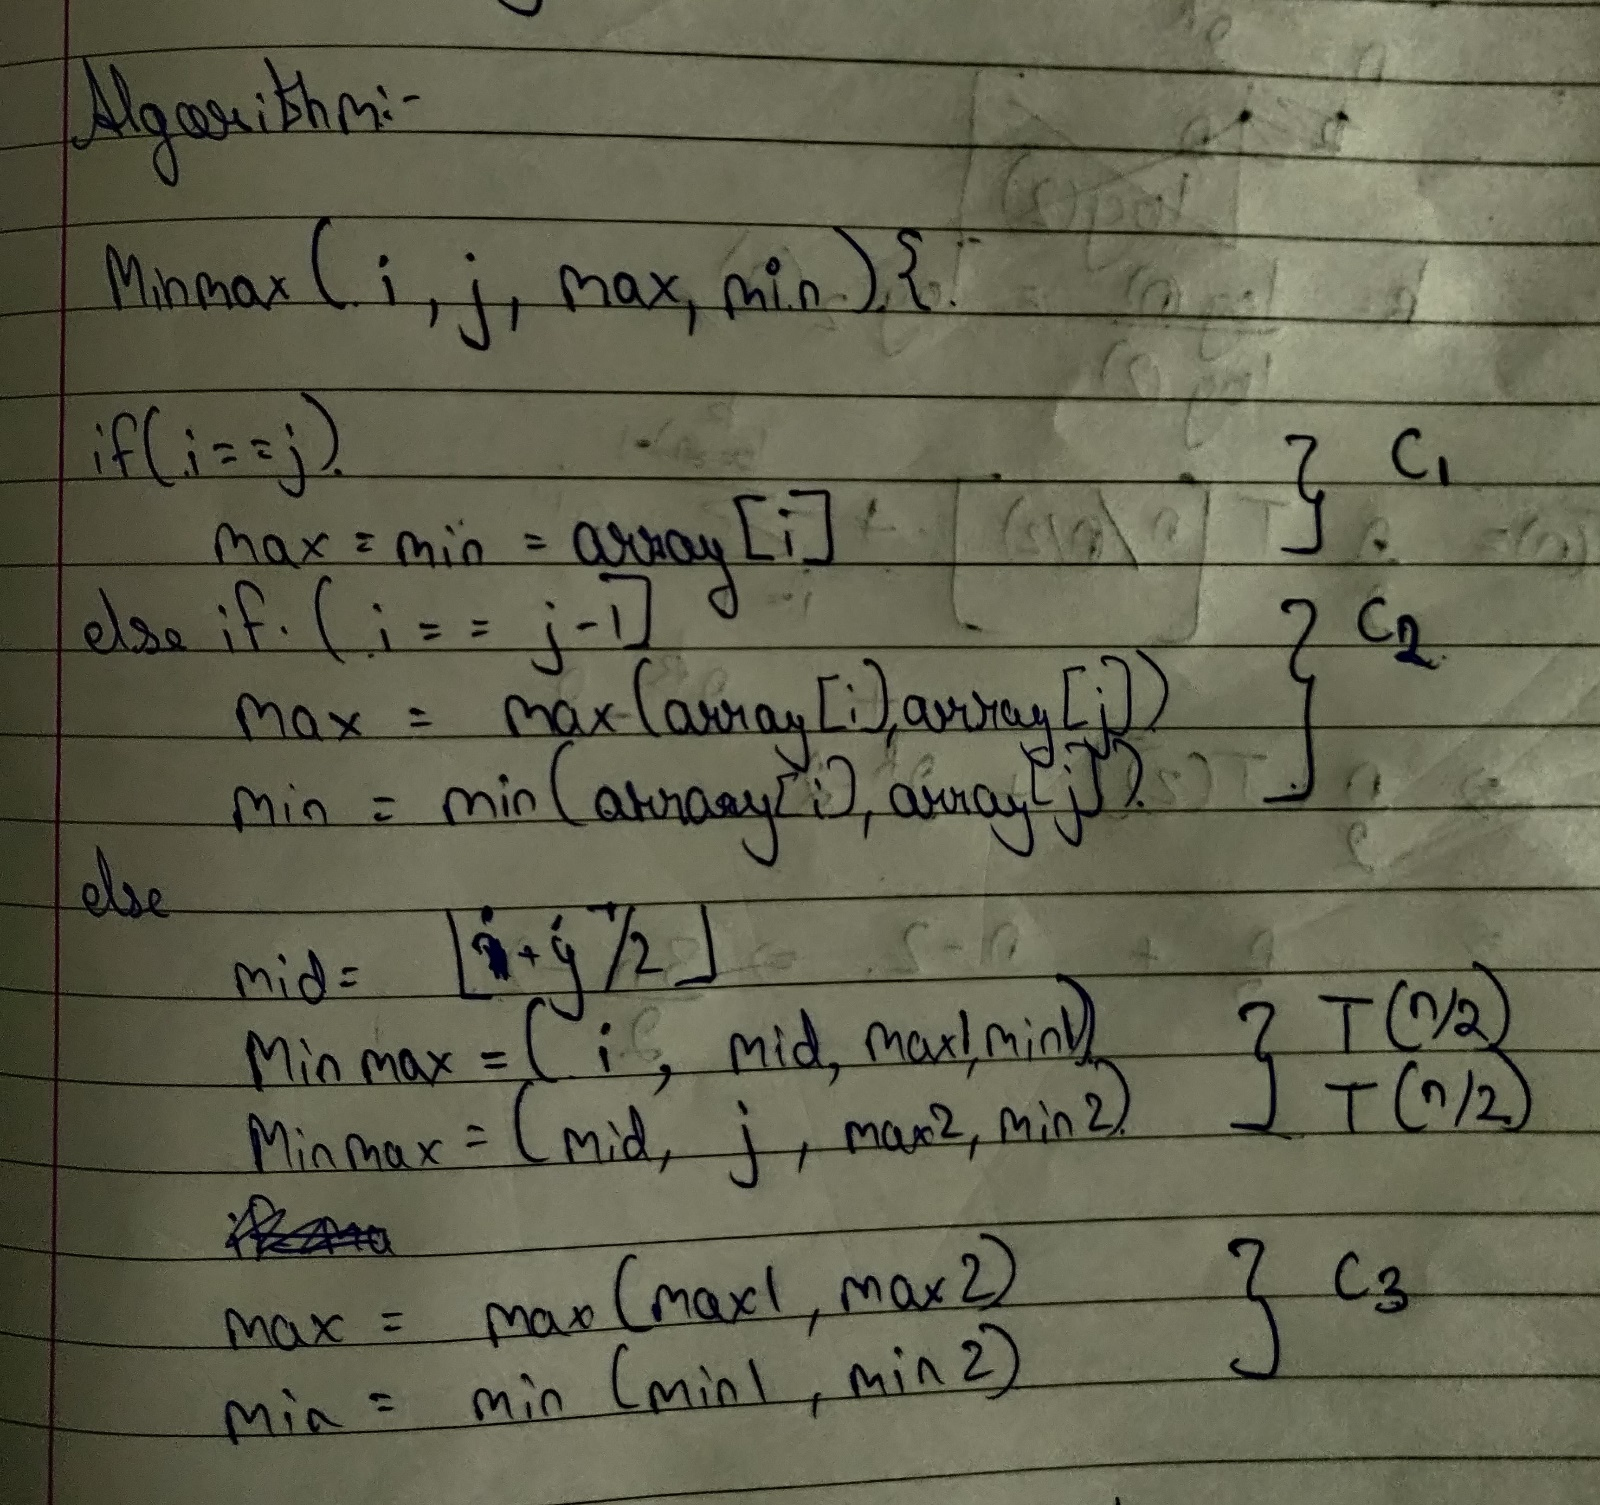 Algorithm:-
Minmax (i, j, max, min) {
if(i==j)
max = min = array[i]
} C1
else if (i == j-1]
max = max(array[i], array[j])
min = min(array[i], array[j])
} C2
else
mid = ⌊i+j/2⌋
Minmax = (i, mid, max1, min1)
Minmax = (mid, j, max2, min2)
} T(n/2)
T(n/2)
max = max (max1, max2)
min = min (min1, min2)
} C3